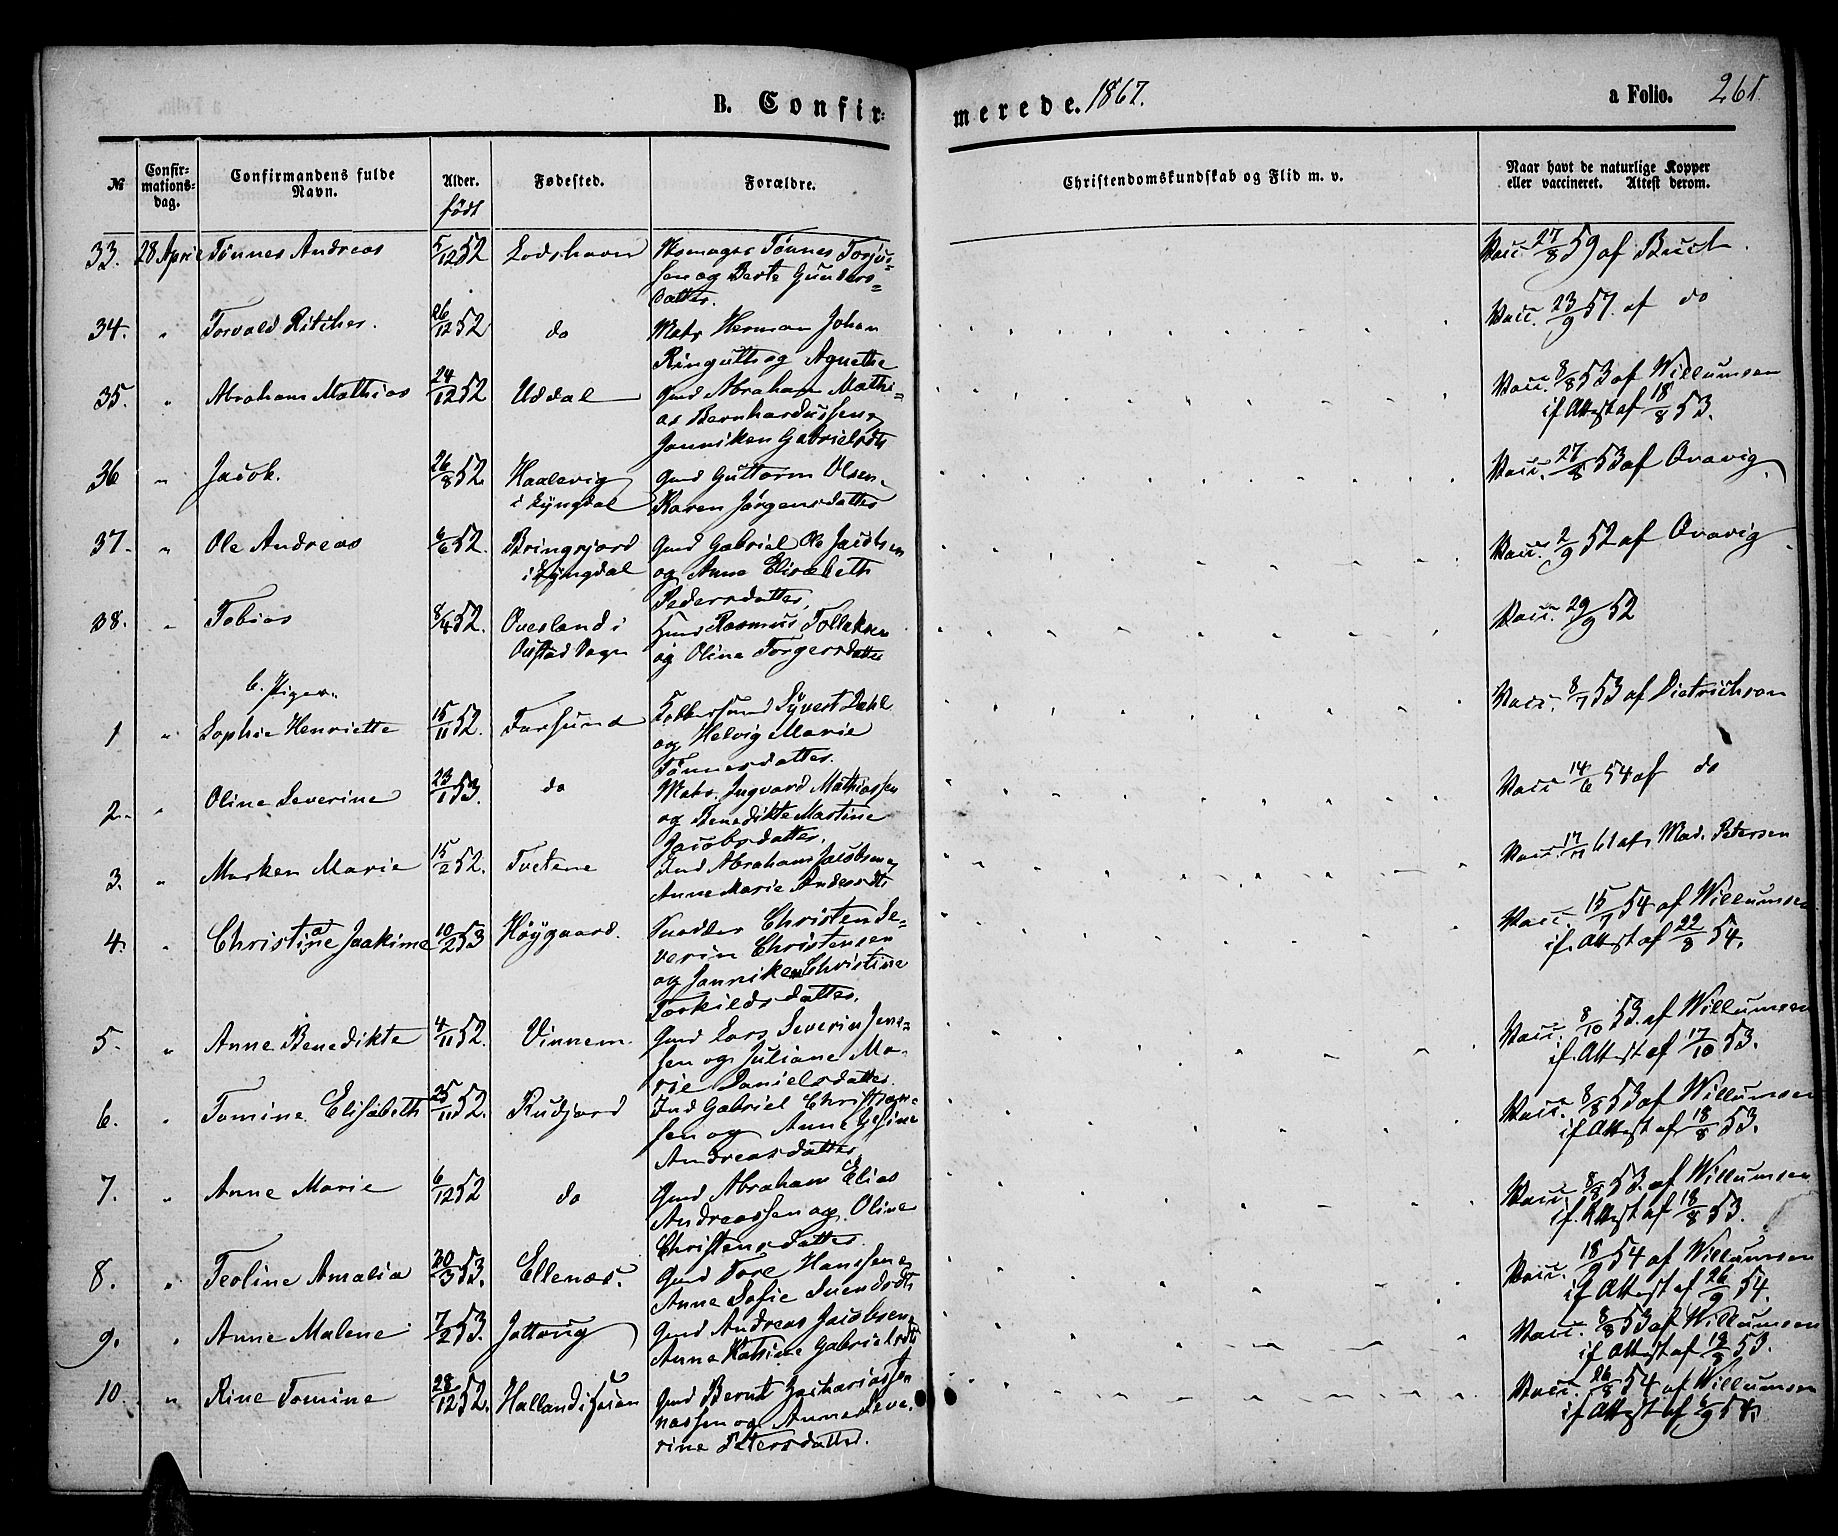 B. Confir-
merede. 1867.
a Folio. 261
№
Confir-
mations-
dag.
Confirmandens fulde
Navn.
Alder.
født
Fødested.
Forældre.
Christendomskundskab og Flid m. v.
Naar havt de naturlige Kopper
eller vaccineret. Attest derom.
33. 28 April Tønnes Andreas 5/12 52 Lodshavn Tønnes Torjus-
sen og Berte Gunders-
datter.
Vacc. 27/8 59 af Buch.
34. " Torvald Ritcher. 26/12 52 do Matr. Herman Johan
Ringulth og Agnethe
Vacc. 23/9 57. af do
35. " Abraham Mathias 24/12 52 Uddal Gmd Abraham Mathi-
as Bernhardussen,
Janniken Gabrielsdtr
Vacc. 8/8 53 af Willumsen
if Attest af 18/8 53.
36 " Jacob. 26/8 52. Haalevig
i Lyngdal
Gmd Guttorm Olsen,
Karen Jørgensdatter
Vacc. 27/8 53 af Qvavig
37. " Ole Andreas 6/6 52. Bringsjord
i Lyngdal
Gmd Gabriel Ole Jacobsen
og Anne Elisabeth
Pedersdatter,
Vacc. 2/9 52 af Qvavig
38. " Tobias 8/4 52. Oveland i
Sogn
Rasmus Tollaksen
og Oline Torgersdatter
Vacc. 29/9 52
b. Piger.
1 " Sophie Henriette 15/11 52. Farsund Sÿvert Dahl
og Helvig Marie
Tønnesdatter.
Vacc. 8/7 53 af Dietrichson
2. " Oline Severine 23/1 53. do Matr. Ingvard Mathiassen
og Benedikte Martine
Jacobsdatter.
Vacc 14/6 54 af do
3. " Marken Marie 15/2 52. Tvetene Ind Abraham Jacobsen,
Anne Marie Andersdtr
Vacc. 17/7 61 af Mad. Petersen
4. " Christine Jaakime 10/2 53 Høygaard. Christen Se-
verin Christensen
og Janniken Christine
Torkildsdatter.
Vacc. 15/7 54 af Willumsen
if. Attest af 22/8 54.
5. " Anne Benedikte 4/11 52. Vinnem. Gmd Lars Severin Jen-
sen og Juliane Ma-
rie Danielsdatter.
Vacc. 8/10 53. af Willumsen
if. Attest af 17/10 53.
6. " Tomine Elisabeth 25/11 52. Rudjord Ind Gabriel Christian-
sen og Anne Gesine
Andreasdatter
Vacc. 8/8 53 af Willumsen
if Attest af 18/8 53.
7. " Anne Marie 6/12 52 do Gmd Abraham Elias
Andreassen og Oline
Christensdatter.
Vacc. 8/8 53. af Willumsen
if. Attest af 18/8 53.
8. " Teoline Amalia 30/3 53. Ellenæs. Gmd Tore Hanssen,
Anne Sofie Svendsdtr
Vacc. 18/9 54 af Willumsen
if Attest af 26/9 54.
9. " Anne Malene 7/2 53. Jattoug Gmd Andreas Jacobsen,
Anne Katrine Gabrielsdtr
Vacc. 8/8 53 af Willumsen
if Attest af 18/8 53.
10. " Rine Tomine 28/12 52. Halland i Gmd Bernt Zachariassen
og Anne Seve-
rine Petersdatter.
Vacc. 26/8 54 af Willumsen
if Attest af 6/9 54.